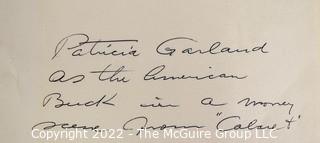 Patricia Garland
as the American
Buck in a money
scene from "Cabaret"
Copyright 2022 - The McGuire Group LLC